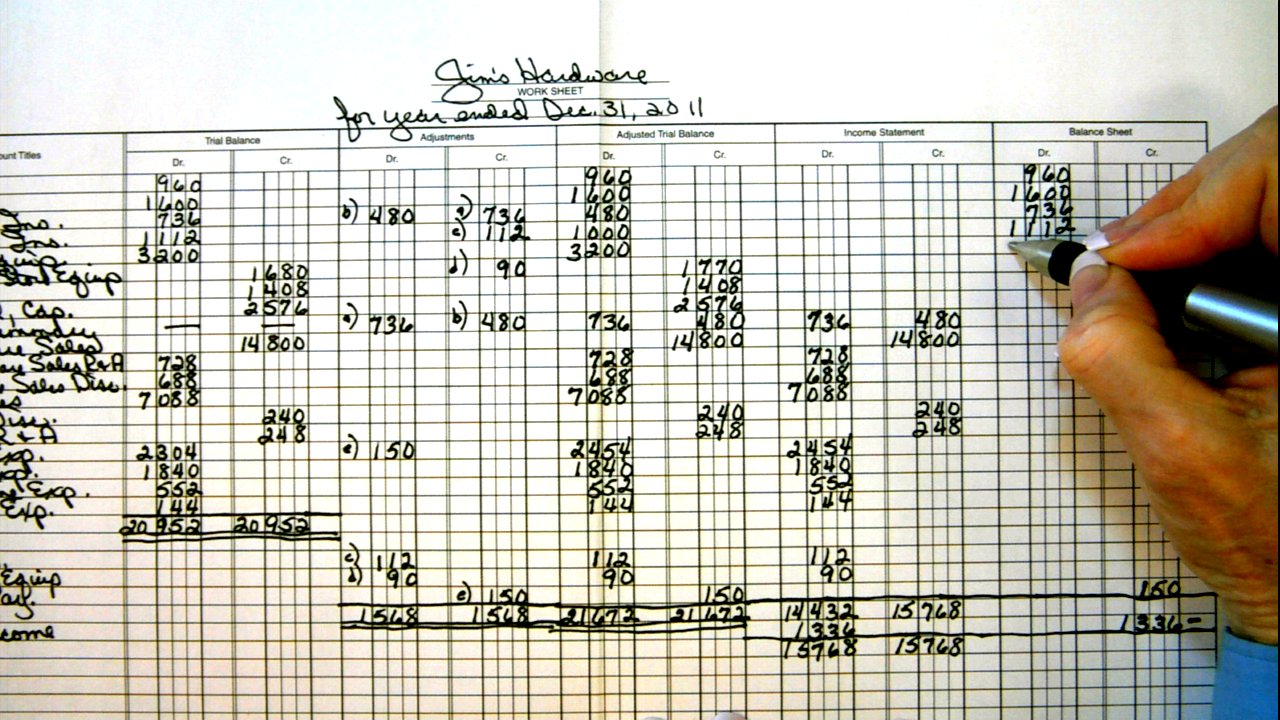 Jim's Hardware
WORK SHEET
for year ended Dec. 31, 2011
unt Titles Trial Balance Adjustments Adjusted Trial Balance Income Statement Balance Sheet
Dr. Cr. Dr. Cr. Dr. Cr. Dr. Cr. Dr. Cr.
960 960 960
1600 1600 1600
Inv. 736 b) 480 a) 736 480 736
Ins. 1112 c) 112 1000 1112
Equip. 3200 3200
Store Equip 1680 d) 90 1770
1408 1408
Cap. 2576 2576
— — a) 736 b) 480 736 480 736 480
Sales 14800 14800 14800
Sales R+A 728 728 728
Sales Disc. 688 688 688
7088 7088 7088
Disc. 240 240 240
R+A 248 248 248
Exp. 2304 e) 150 2454 2454
Exp. 1840 1840 1840
Exp. 552 552 552
Exp. 144 144 144
20952 20952
c) 112 112 112
Equip d) 90 90 90
Pay. e) 150 150 150
1568 1568 21672 21672 14432 15768
come 1336 1336-
15768 15768